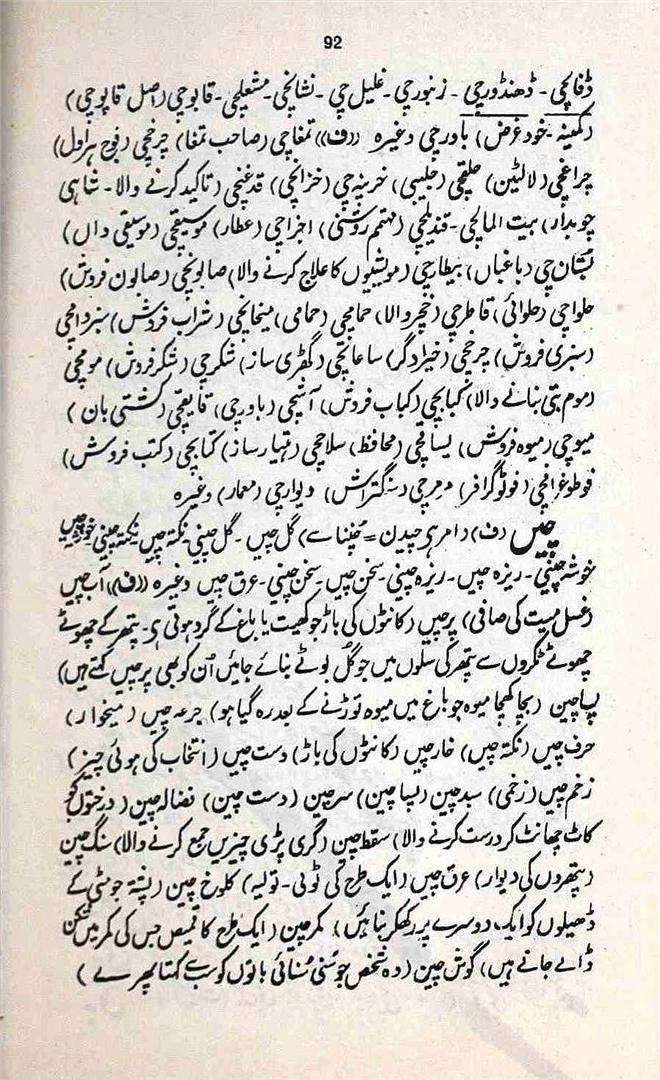 92
ڈفالچی - ڈھنڈورچی - زنبورچی - غلیل چی - نشانچی - مشعلچی - قابوچی (اصل قاپوچی)
(کمینہ - خود غرض) باورچی وغیرہ ((ف)) تمغاچی (صاحب تمغا) چرخچی (فوج ہراول)
چراغچی (لالٹین) حلقچی (جلیبی) خزینہ چی (خزانچی) قدغنچی (تاکید کرنے والا - شاہی
چوبدار) بیت المالچی - قندیلچی (مہتمم روشنی) اجزاچی (عطار) موسیقچی (موسیقی داں)
بستان چی (باغباں) بیطارچی (مویشیوں کا علاج کرنے والا) صابونچی (صابون فروش)
حلواچی (حلوائی) قاطرچی (خچر والا) حمامچی (حمامی) میخانچی (شراب فروش) سبزواچی
(سبزی فروش) چرخچی (خیرادگر) ساعاتچی (گھڑی ساز) شکرچی (شکر فروش) مومچی
(موم بتی بنانے والا) کبابچی (کباب فروش) آشچی (باورچی) قایقچی (کشتی بان)
میوچی (میوہ فروش) یساقچی (محافظ) سلاحچی (ہتیار ساز) کتابچی (کتب فروش)
فوطوغرافچی (فوٹو گرافر) مرمرچی (سنگتراش) دیوارچی (معمار) وغیرہ
چیں (ف) (امر ہی چیدن = چُننا سے) گل چیں - گل چینی - نکتہ چیں نکتہ چینی - خوشہ چیں
خوشہ چینی - ریزہ چیں - ریزہ چینی - سخن چیں - سخن چینی - عرق چیں وغیرہ ((ف)) آب چیں
(غسل میت کی صافی) پرچیں (کانٹوں کی باڑ جو کھیت یا باغ کے گرد ہوتی ہی - پتھر کے چھوٹے
چھوٹے ٹکڑوں سے پتھر کی سلوں میں جو گُل بوٹے بنائے جائیں اُن کو بھی پرچیں کہتے ہیں)
پساچین (بچا کھچا میوہ جو باغ میں میوہ توڑنے کے بعد رہ گیا ہو) جرعہ چیں (میخوار)
حرف چیں (نکتہ چیں) خارچیں (کانٹوں کی باڑ) دست چیں (انتخاب کی ہوئی چیز)
زخم چیں (زخمی) سبد چین (لپسا چین) سرچین (دست چین) فضالہ چین (درختوں کو
کاٹ چھانٹ کر درست کرنے والا) سقط چین (گری پڑی چیزیں جمع کرنے والا) سنگ چین
(پتھروں کی دیوار) عرق چیں (ایک طرح کی ٹوپی - تولیہ) کلوخ چین (پشتہ جو مٹی کے
ڈھیلوں کو ایک دوسرے پر رکھکر بنائیں) کمرچین (ایک طرح کا قمیص جس کی کمر میں شکن
ڈالے جاتے ہیں) گوش چین (وہ شخص جو سُنی سُنائی باتوں کو سب سے کہتا پھرے)